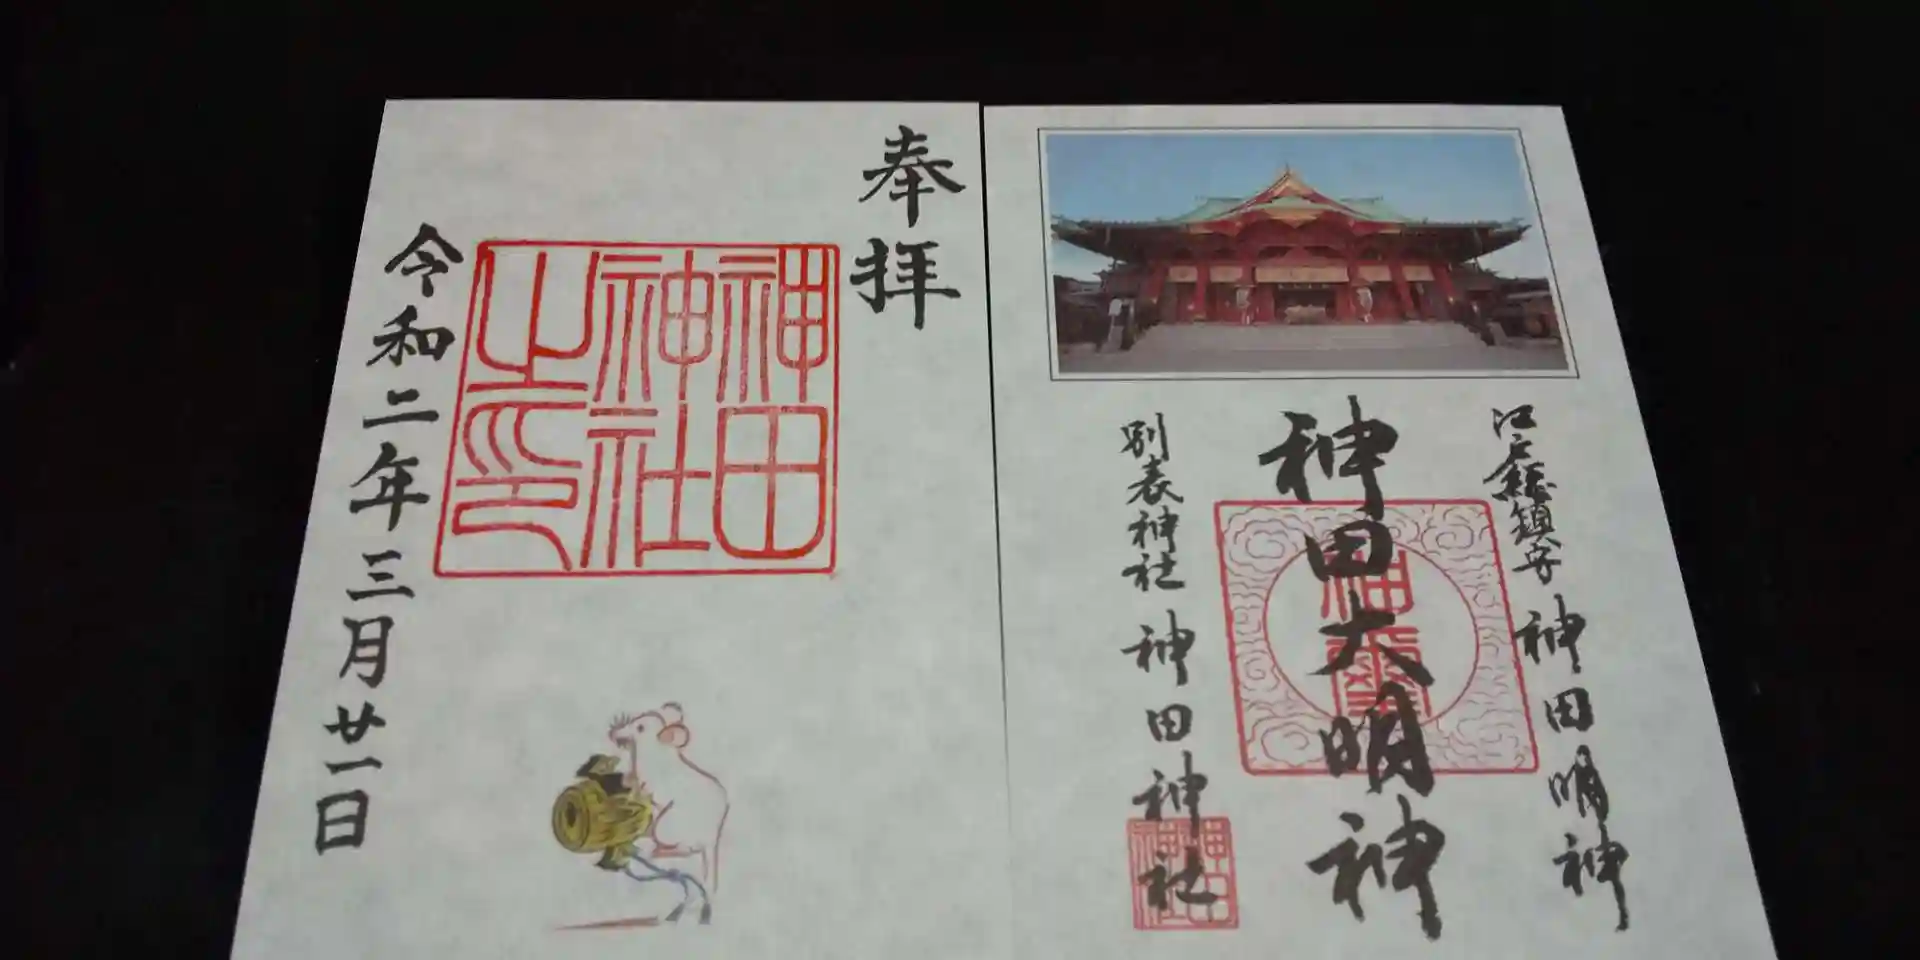 江戸総鎮守 神田明神
神田大明神
神璽
別表神社 神田神社
神田神社
奉拝
神田神社之印
令和二年三月廿一日